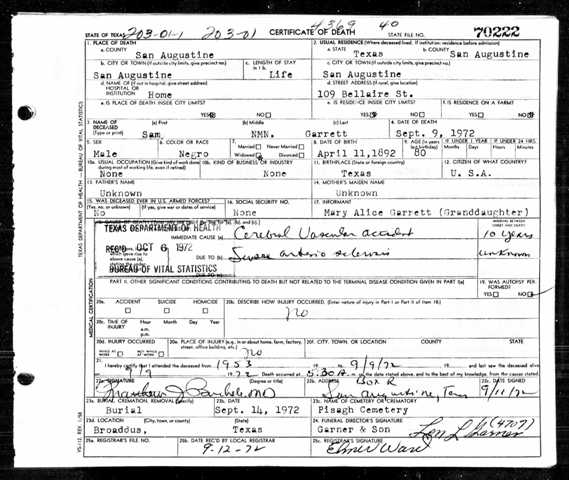 4369 40
STATE OF TEXAS 203-01-1 203-01 CERTIFICATE OF DEATH STATE FILE NO. 70222
1. PLACE OF DEATH
a. COUNTY San Augustine
2. USUAL RESIDENCE (Where deceased lived. If institution: residence before admission)
a. STATE Texas b. COUNTY San Augustine
b. CITY OR TOWN (If outside city limits, give precinct no.) San Augustine
c. LENGTH OF STAY in 1 b. Life
c. CITY OR TOWN (If outside city limits, give precinct no.) San Augustine
d. NAME OF (If not in hospital, give street address) HOSPITAL OR INSTITUTION Home
d. STREET ADDRESS (If rural, give location) 109 Bellaire St.
e. IS PLACE OF DEATH INSIDE CITY LIMITS? YES NO
e. IS RESIDENCE INSIDE CITY LIMITS? YES NO
f. IS RESIDENCE ON A FARM? YES NO
3. NAME OF DECEASED (Type or print) (a) First Sam (b) Middle NMN. (c) Last Garrett
4. DATE OF DEATH Sept. 9, 1972
5. SEX Male
6. COLOR OR RACE Negro
7. Married Never Married Widowed Divorced
8. DATE OF BIRTH April 11,1892
9. AGE (In years last birthday) 80
IF UNDER 1 YEAR Months Days
IF UNDER 24 HRS. Hours Min.
10a. USUAL OCCUPATION (Give kind of work done during most of working life, even if retired) None
10b. KIND OF BUSINESS OR INDUSTRY None
11. BIRTHPLACE (State or foreign country) Texas
12. CITIZEN OF WHAT COUNTRY? U. S.A.
13. FATHER'S NAME Unknown
14. MOTHER'S MAIDEN NAME Unknown
15. WAS DECEASED EVER IN U.S. ARMED FORCES? (Yes, no, or unk.) (If yes, give war or dates of service) No
16. SOCIAL SECURITY NO. None
17. INFORMANT Mary Alice Garrett (Granddaughter)
TEXAS DEPARTMENT OF HEALTH
REC'D OCT 6 1972
BUREAU OF VITAL STATISTICS
IMMEDIATE CAUSE (a) Cerebral Vascular accident
INTERVAL BETWEEN ONSET AND DEATH 10 years
DUE TO (b) Severe arterio sclerosis unknown
DUE TO (c)
PART II. OTHER SIGNIFICANT CONDITIONS CONTRIBUTING TO DEATH BUT NOT RELATED TO THE TERMINAL DISEASE CONDITION GIVEN IN PART I(a)
19. WAS AUTOPSY PERFORMED? YES NO
20a. ACCIDENT SUICIDE HOMICIDE
20b. DESCRIBE HOW INJURY OCCURRED. (Enter nature of injury in Part I or Part II of item 18.) no
20c. TIME OF INJURY Hour a.m. p.m. Month Day Year
20d. INJURY OCCURRED WHILE AT WORK NOT WHILE AT WORK
20e. PLACE OF INJURY (e.g. in or about home, farm, factory, street, office building, etc.) no
20f. CITY, TOWN, OR LOCATION COUNTY STATE
21. I hereby certify that I attended the deceased from 1953 to 9/9/72 and last saw the deceased alive
on 9/9 1972 Death occurred at 5:30 A. m. on the date stated above, and to the best of my knowledge, from the causes stated.
22a. SIGNATURE (Degree or title) MD
22b. ADDRESS Box R San Augustine, Texas
22c. DATE SIGNED 9/11/72
23a. BURIAL, CREMATION, REMOVAL (Specify) Burial
23b. DATE Sept. 14, 1972
23c. NAME OF CEMETERY OR CREMATORY Pisagh Cemetery
23d. LOCATION (City, town, or county) (State) Broaddus, Texas
24. FUNERAL DIRECTOR'S SIGNATURE Garner & Son (4707)
25a. REGISTRAR'S FILE NO.
25b. DATE REC'D BY LOCAL REGISTRAR 9-12-72
25c. REGISTRAR'S SIGNATURE Elmer Ward
TEXAS DEPARTMENT OF HEALTH — BUREAU OF VITAL STATISTICS
MEDICAL CERTIFICATION
VS-112, REV. 1/58